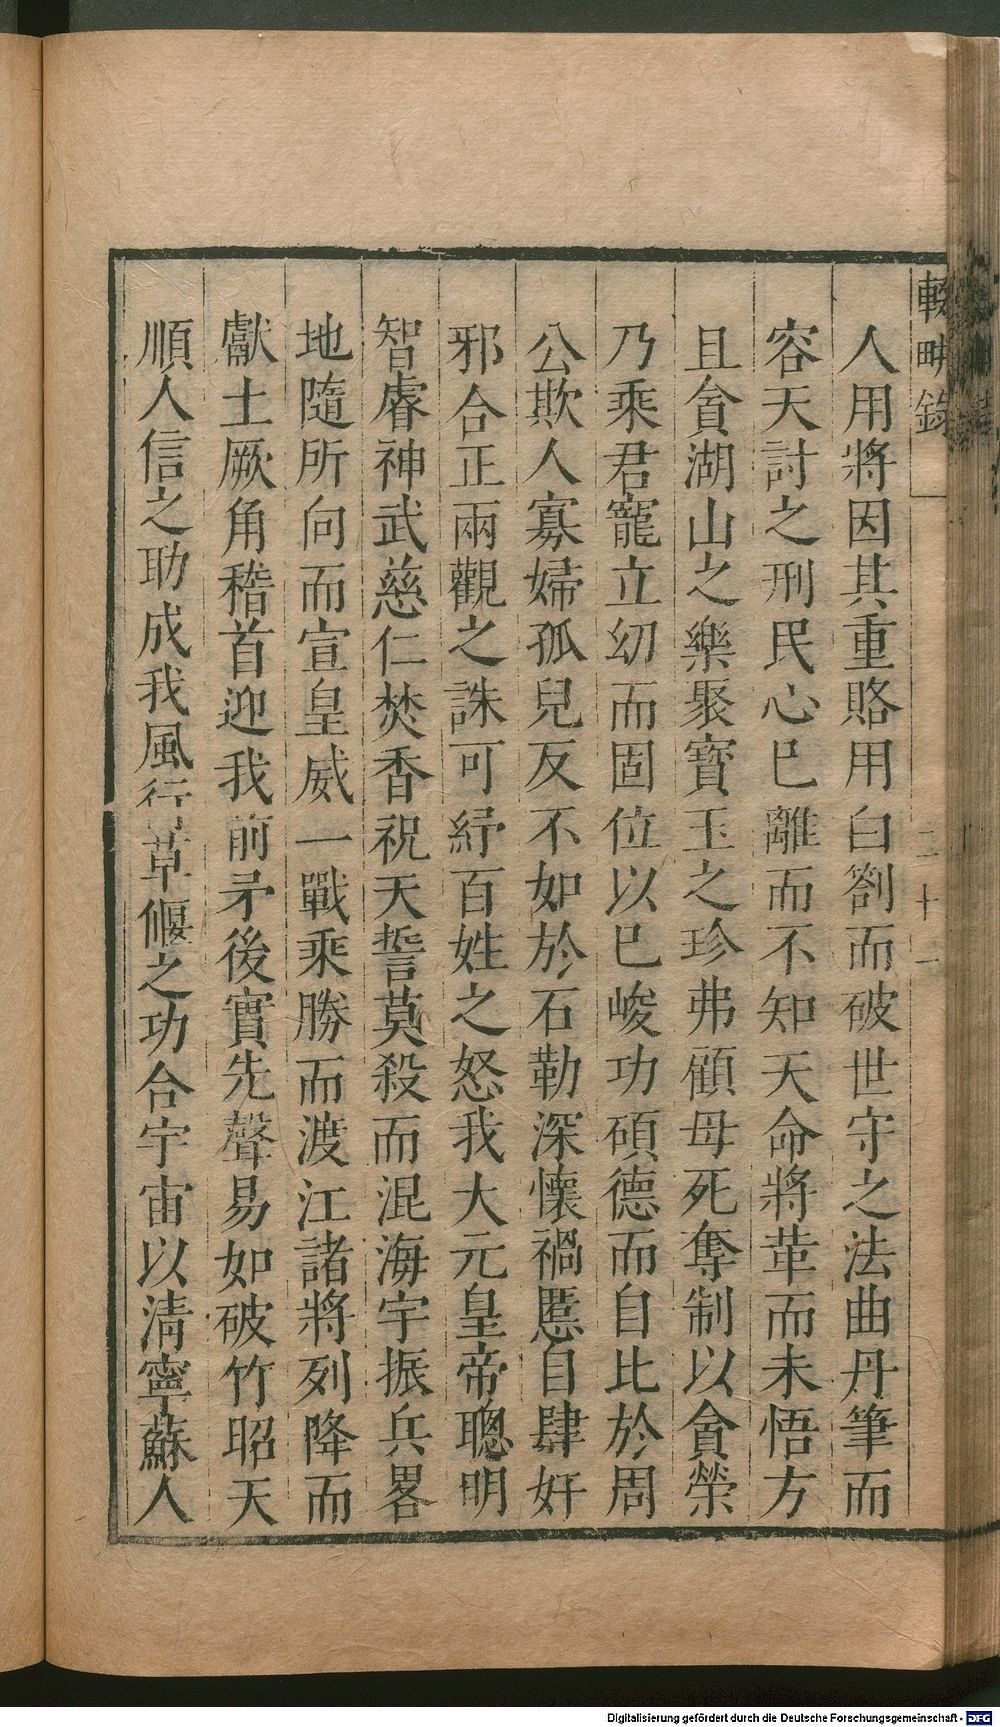 輟畊錄
二十一
人用將因其重賂用白劄而破世守之法曲丹筆而
容天討之刑民心已離而不知天命將革而未悟方
且貪湖山之樂聚寶玉之珍弗顧母死奪制以貪榮
乃乘君寵立幼而固位以已峻功碩德而自比於周
公欺人寡婦孤兒反不如於石勒深懷禍慝自肆奸
邪合正兩觀之誅可紓百姓之怒我大元皇帝聰明
智睿神武慈仁焚香祝天誓莫殺而混海宇振兵畧
地隨所向而宣皇威一戰乘勝而渡江諸將列降而
獻土厥角稽首迎我前矛後實先聲易如破竹昭天
順人信之助成我風行草偃之功合宇宙以清寧蘇人
Digitalisierung gefördert durch die Deutsche Forschungsgemeinschaft - DFG